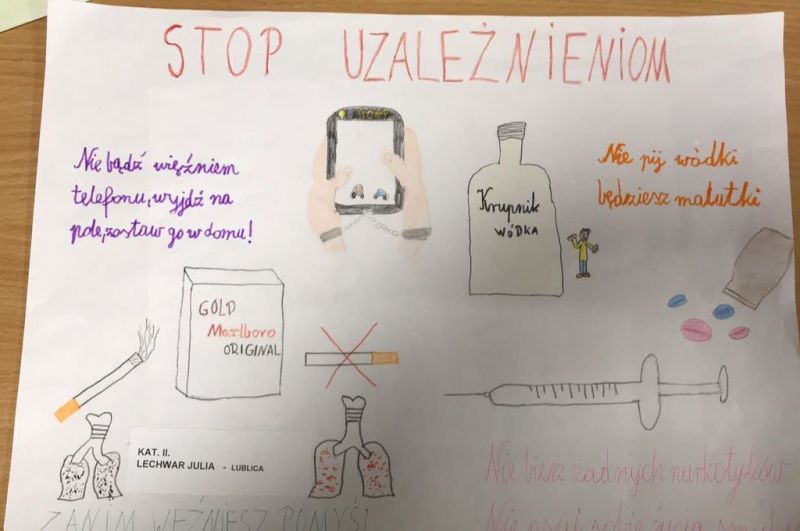 STOP UZALEŻNIENIOM
Nie bądź więźniem
telefonu, wyjdź na
pole, zostaw go w domu!
Krupnik
WÓDKA
Nie pij wódki
będziesz malutki
GOLD
Marlboro
ORIGINAL
KAT. II.
LECHWAR JULIA - LUBLICA
Nie bierz żadnych narkotyków
Nie psuj sobie życia
ZANIM WEŹNIESZ POMYŚL